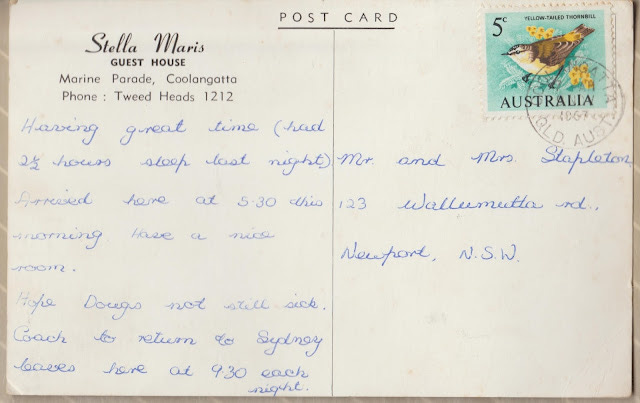 POST CARD
Stella Maris
GUEST HOUSE
Marine Parade, Coolangatta
Phone : Tweed Heads 1212
Having great time (had
2½ hours sleep last night)
Arrived here at 5.30 this
morning Have a nice
room.
Hope Dougs not still sick.
Coach to return to Sydney
leaves here at 9.30 each
night.
5c
YELLOW-TAILED THORNBILL
AUSTRALIA
QLD AUST
Mr. and Mrs. Stapleton
123 Wallumutta rd.,
Newport, N.S.W.